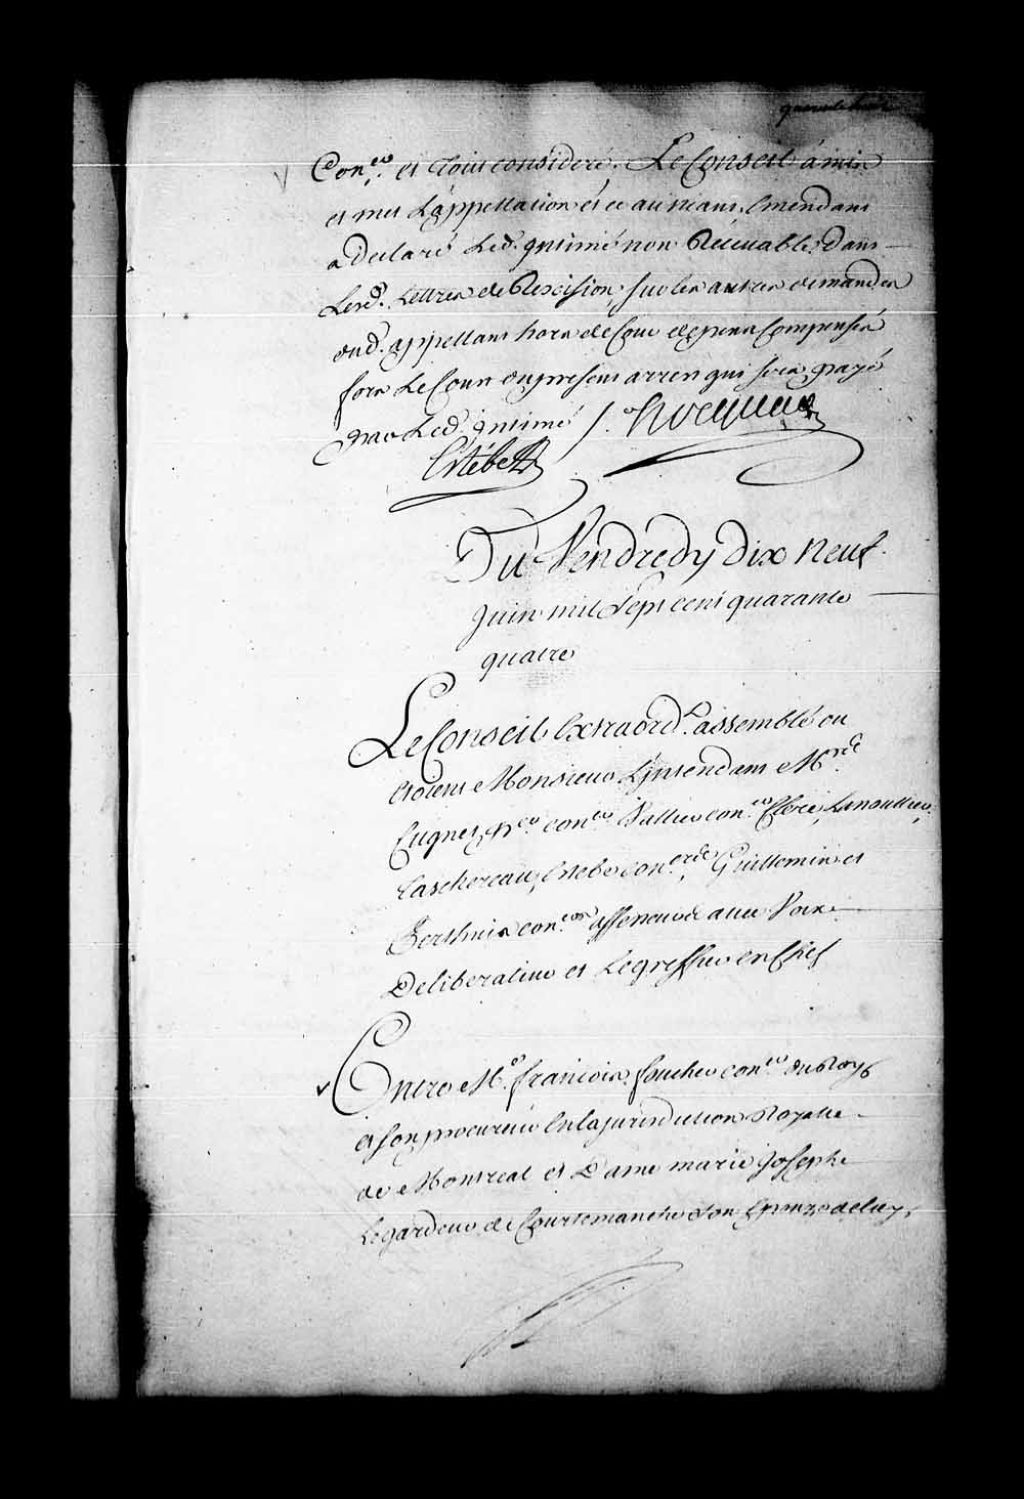 Con.er et Tout consideré. Le Conseil à mis
et met L'appellation et ce au néant, Emendant
a Declaré Led. Intimé non Recevable Dans
Lesd. Lettres de Rescision, sur les autres demandes
dud. appellant hors de Cour depens Compensés
fors Le Cout du present arrest qui sera payé
par Led. Intimé / Hocquart
Estèbe
Du Vendredy dix neuf
Juin mil sept cent quarante
quatre
Le Conseil Extraord.t assemblé ou
etoient Monsieur L'Intendant M.rs
Cugnet p.er con.er Vallier con.er Lanoullier,
Taschereau, Estebe con.ers Guillemin et
con.ers assesseurs avec Voix
Deliberative et Le greffier en Chef
Entre M.e françois foucher con.er du Roy
et son procureur En la jurisdiction Royalle
de Montreal et Dame marie Josephe
Legardeur de Courtemanche son Epouze de luy